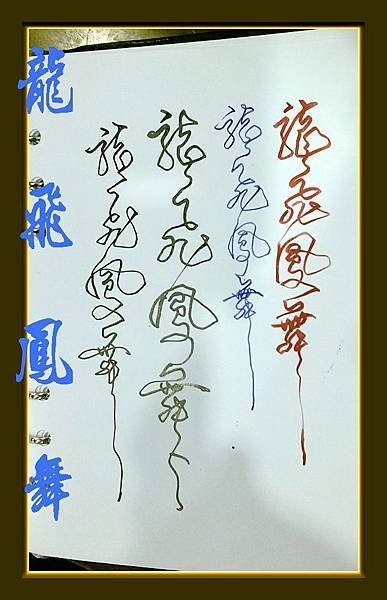 龍飛鳳舞
龍飛鳳舞
龍飛鳳舞
龍飛鳳舞
龍飛鳳舞